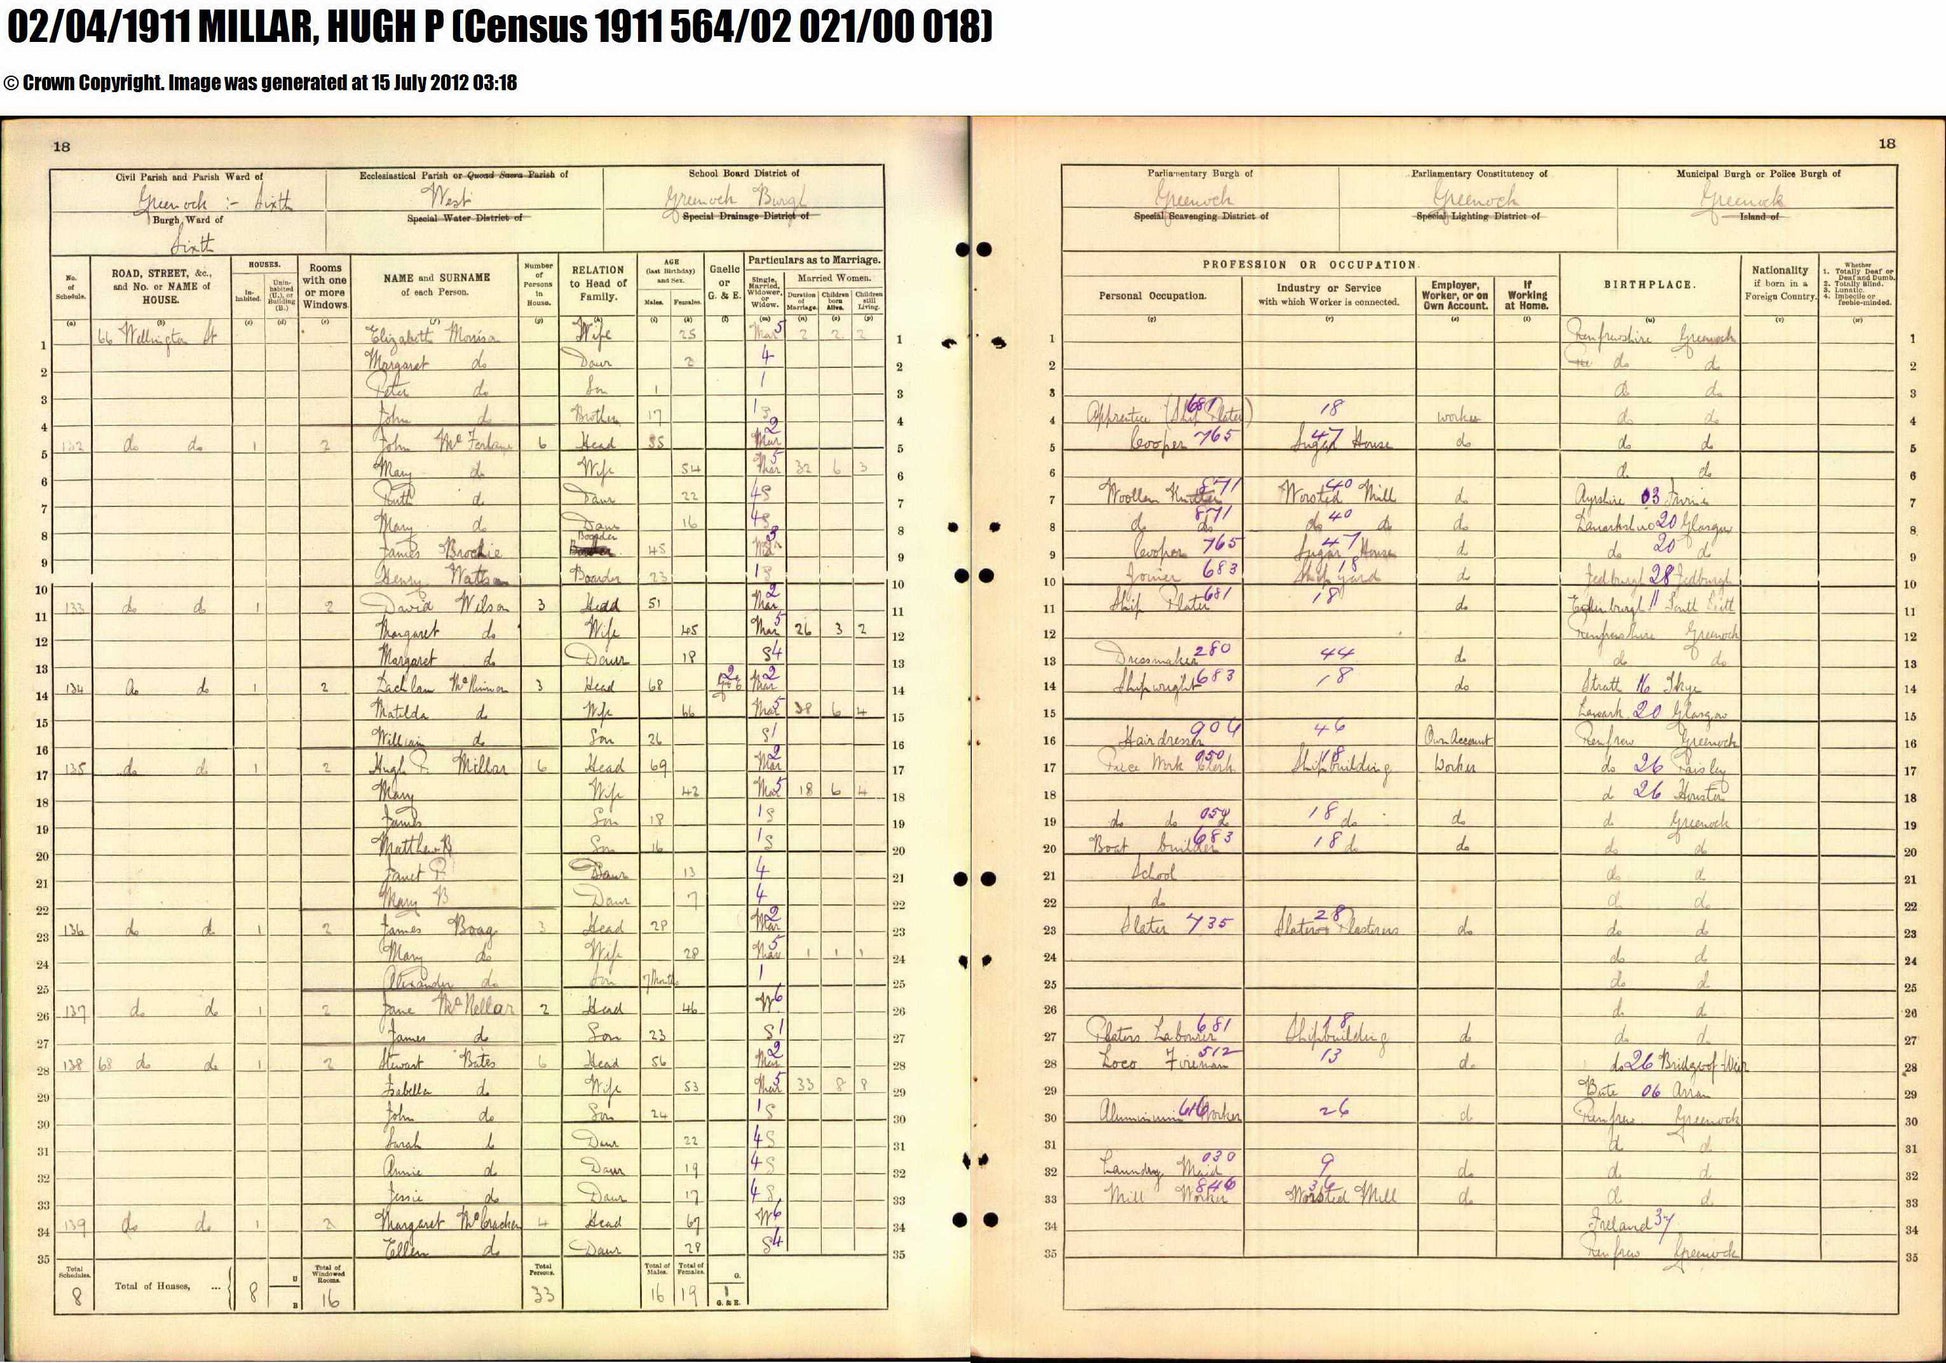 02/04/1911 MILLAR, HUGH P (Census 1911 564/02 021/00 018)
© Crown Copyright. Image was generated at 15 July 2012 03:18
18 18
Civil Parish and Parish Ward of Ecclesiastical Parish or Quoad Sacra Parish of School Board District of Parliamentary Burgh of Parliamentary Constituency of Municipal Burgh or Police Burgh of
Greenock :- Sixth West Greenock Burgh Greenock Greenock Greenock
Burgh Ward of Special Water District of Special Drainage District of Special Scavenging District of Special Lighting District of Island of
Sixth
No. of Schedule. ROAD, STREET, &c., and No. or NAME of HOUSE. HOUSES. Inhabited. Uninhabited (U.), or Building (B.) Rooms with one or more Windows. NAME and SURNAME of each Person. Number of Persons in House. RELATION to Head of Family. AGE (last Birthday) and Sex. Males. Females. Gaelic or G. & E. Particulars as to Marriage. Single, Married, Widower, or Widow. Married Women. Duration of Marriage. Children born Alive. Children still Living.
PROFESSION OR OCCUPATION. Personal Occupation. Industry or Service with which Worker is connected. Employer, Worker, or on Own Account. If Working at Home. BIRTHPLACE. Nationality if born in a Foreign Country. Whether 1. Totally Deaf or Deaf and Dumb. 2. Totally Blind. 3. Lunatic. 4. Imbecile or feeble-minded.
1 66 Wellington St Elizabeth Morrison Wife 25 Mar 5 2 2 2 1 Renfrewshire Greenock 1
2 Margaret do Daur 2 4 2 do do 2
3 Peter do Son 1 1 3 do do 3
4 John do Brother 17 1 S 4 Apprentice (Ship Plater) 681 18 worker do do 4
5 132 do do 1 2 John McFarlane 6 Head 55 Mar 2 5 Cooper 765 Sugar House 47 do do do 5
6 Mary do Wife 54 Mar 5 32 6 3 6 do do 6
7 Ruth do Daur 22 4 S 7 Woollen Knitter 871 Worsted Mill 40 do Ayrshire 03 Irvine 7
8 Mary do Daur 16 4 S 8 do do 871 do 40 do do Lanarkshire 20 Glasgow 8
9 James Brockie Boarder 45 3 9 Cooper 765 Sugar House 47 do do 20 do 9
10 Henry Watson Boarder 23 1 S 10 Joiner 683 Ship yard 18 do Jedburgh 28 Jedburgh 10
11 133 do do 1 2 David Wilson 3 Head 51 Mar 2 11 Ship Plater 681 18 do Edinburgh 11 South Leith 11
12 Margaret do Wife 45 Mar 5 26 3 2 12 Renfrewshire Greenock 12
13 Margaret do Daur 18 S 4 13 Dressmaker 280 44 do do do 13
14 134 do do 1 2 Lachlan McKinnon 3 Head 68 G & E 2 Mar 2 14 Shipwright 683 18 do Strath 16 Skye 14
15 Matilda do Wife 66 Mar 5 38 6 4 15 Lanark 20 Glasgow 15
16 William do Son 26 S 1 16 Hairdresser 904 46 Own Account Renfrew Greenock 16
17 135 do do 1 2 Hugh P. Millar 6 Head 69 Mar 2 17 Piece Work Clerk 050 Shipbuilding 18 Worker do 26 Paisley 17
18 Mary Wife 42 Mar 5 18 6 4 18 do 26 Houston 18
19 James Son 18 1 S 19 do do 18 do do do Greenock 19
20 Matthew B Son 16 1 S 20 Boat builder 683 18 do do do do 20
21 Janet P Daur 13 4 21 School do do 21
22 Mary B Daur 7 4 22 do do do 22
23 136 do do 1 2 James Boag 3 Head 28 Mar 2 23 Slater 735 Slaters Plasterers 28 do do do 23
24 Mary do Wife 28 Mar 5 1 1 1 24 do do 24
25 Alexander do Son 7 Months 1 25 do do 25
26 137 do do 1 2 Jane McKellar 2 Head 46 W 6 26 do do 26
27 James do Son 23 S 1 27 Platers Labourer 681 Shipbuilding 18 do do do 27
28 138 68 do do 1 2 Stewart Bates 6 Head 56 Mar 2 28 Loco Fireman 512 13 do do 26 Bridge of Weir 28
29 Isabella do Wife 53 Mar 5 33 8 8 29 Bute 06 Arran 29
30 John do Son 24 1 S 30 Aluminium Worker 616 26 do Renfrew Greenock 30
31 Sarah do Daur 22 4 S 31 do do 31
32 Annie do Daur 19 4 S 32 Laundry Maid 030 9 do do do 32
33 Jessie do Daur 17 4 S 33 Mill Worker 846 Worsted Mill 36 do do do 33
34 139 do do 1 2 Margaret McCracken 4 Head 67 W 6 34 Ireland 37 34
35 Ellen do Daur 28 S 4 35 Renfrew Greenock 35
Total Schedules. 8 Total of Houses, ... 8 U B Total of Windowed Rooms. 16 Total Persons. 33 Total of Males. 16 Total of Females. 19 G. 1 G. & E.